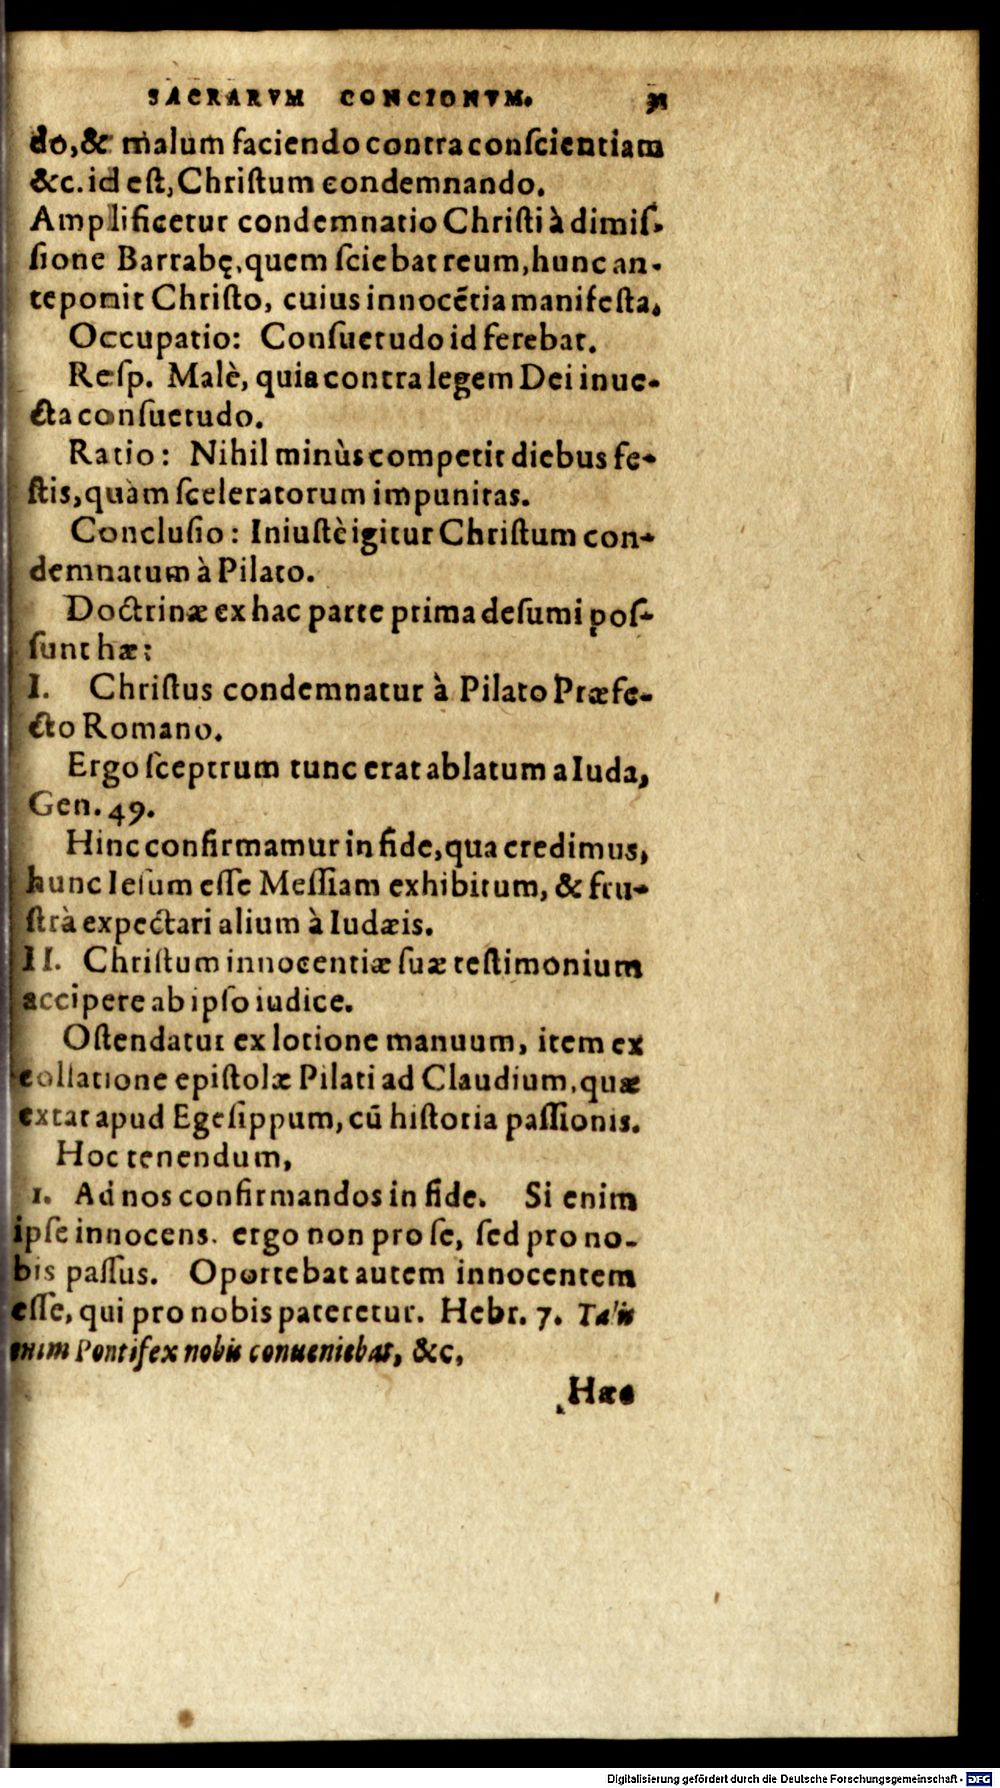 SACRARVM CONCIONVM.
do, & malum faciendo contra conſcientiam
&c. id eſt, Chriſtum condemnando.
Amplificetur condemnatio Chriſti à dimiſ-
ſione Barrabę, quem ſciebat reum, hunc an-
teponit Chriſto, cuius innocẽtia manifeſta.
Occupatio: Conſuetudo id ferebat.
Reſp. Malè, quia contra legem Dei inue-
cta conſuetudo.
Ratio: Nihil minùs competit diebus fe-
ſtis, quàm ſceleratorum impunitas.
Concluſio: Iniuſtè igitur Chriſtum con-
demnatum à Pilato.
Doctrinæ ex hac parte prima deſumi poſ-
ſunt hæ:
I. Chriſtus condemnatur à Pilato Præfe-
cto Romano.
Ergo ſceptrum tunc erat ablatum a Iuda,
Gen. 49.
Hinc confirmamur in fide, qua credimus,
hunc Ieſum eſſe Meſſiam exhibitum, & fru-
ſtrà expectari alium à Iudæis.
II. Chriſtum innocentiæ ſuæ teſtimonium
accipere ab ipſo iudice.
Oſtendatur ex lotione manuum, item ex
collatione epiſtolæ Pilati ad Claudium, quæ
extat apud Egeſippum, cũ hiſtoria paſſionis.
Hoc tenendum,
1. Ad nos confirmandos in fide. Si enim
ipſe innocens. ergo non pro ſe, ſed pro no-
bis paſſus. Oportebat autem innocentem
eſſe, qui pro nobis pateretur. Hebr. 7. Talis
enim Pontifex nobis conueniebat, &c,
Hæc
Digitalisierung gefördert durch die Deutsche Forschungsgemeinschaft - DFG